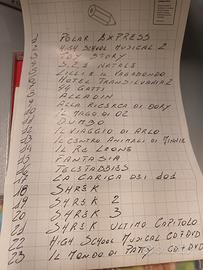 POLAR EXPRESS
HIGH SCHOOL MUSICAL 2
TOY STORY
S.O.S NATALE
LILLI E IL VAGABONDO
HOTEL TRANSILVANIA 2
44 GATTI
ALLADIN
ALLA RICERCA DI DORY
IL MAGO DI OZ
DUMBO
IL VIAGGIO DI ARLO
IL CENTRO ANIMALI DI MINNIE
IL RE LEONE
FANTASIA
TELETABBIES
17 LA CARICA DEI 101
18 SHREK
19 SHREK 2
20 SHREK 3
21 SHREK ULTIMO CAPITOLO
22 HIGH SCHOOL MUSICAL CD+DVD
23 IL MONDO DI PATTY CD+DVD